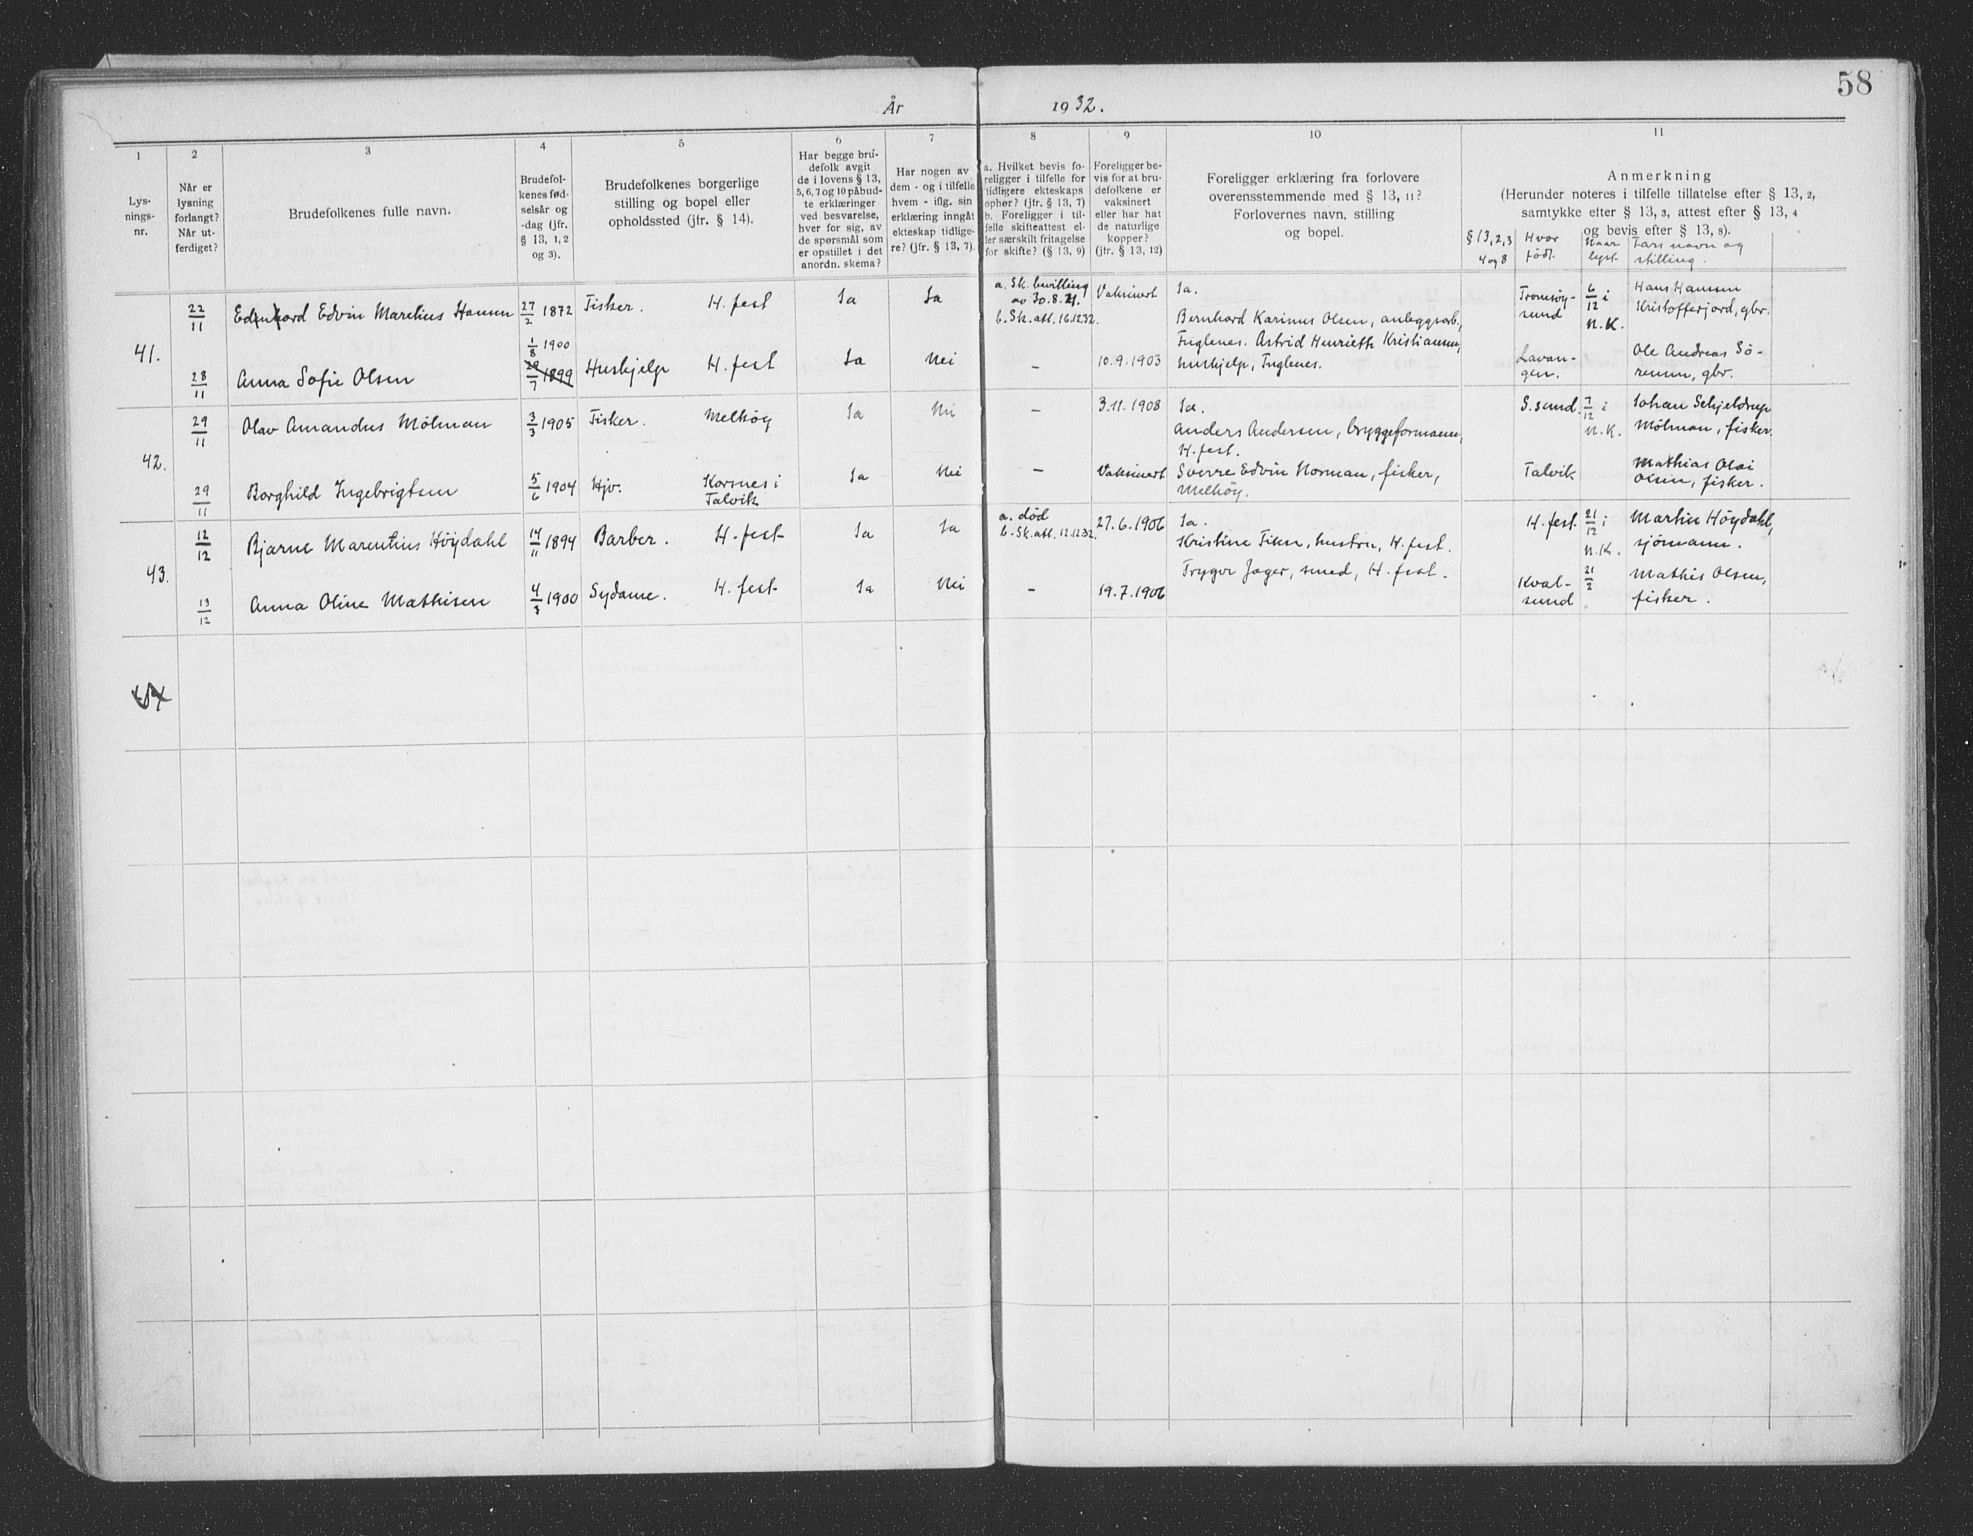 58
År 1932.
1 2 3 4 5 6 7 8 9 10 11
Lys-
nings-
nr.
Når er
lysning
forlangt?
Når ut-
ferdiget?
Brudefolkenes fulle navn.
Brudefol-
kenes fød-
selsår og
-dag (jfr.
§ 13, 1, 2
og 3).
Brudefolkenes borgerlige
stilling og bopel eller
opholdssted (jfr. § 14).
Har begge bru-
defolk avgit
de i lovens § 13,
5, 6, 7 og 10 påbud-
te erklæringer
ved besvarelse,
hver for sig, av
de spørsmål som
er opstillet i det
anordn. skema?
Har nogen av
dem - og i tilfelle
hvem - iflg. sin
erklæring inngått
ekteskap tidlige-
re? (jfr. § 13, 7).
a. Hvilket bevis fo-
religger i tilfelle for
tidligere ekteskaps
ophør? (jfr. § 13, 7)
b. Foreligger i til-
felle skifteattest el-
ler særskilt fritagelse
for skifte? (§ 13, 9)
Foreligger be-
vis for at bru-
defolkene er
vaksinert
eller har hat
de naturlige
kopper?
(jfr. § 13, 12)
Foreligger erklæring fra forlovere
overensstemmende med § 13, 11?
Forlovernes navn, stilling
og bopel.
Anmerkning
(Herunder noteres i tilfelle tillatelse efter § 13, 2,
samtykke efter § 13, 3, attest efter § 13, 4
og bevis efter § 13, 8).
§ 13, 2, 3
4 og 8
Hvor
født.
Naar
lyst.
Fars navn og
stilling.
41.
22/11 Edvin Marelius Hansen 27/2 1872 Fisker. H. fest Ja Ja
a. Sk. bevilling
av 30.8.21.
b. Sk. att. 16.12.32.
Vaksinert
Ja.
Bernhard Karinus Olsen, anleggsarb.,
Fuglenes. Astrid Henriette Kristiansen,
hushjelp, Fuglenes.
Tromsøy-
sund
6/12 i
N.K.
Hans Hansen
Kristofferjord, gbr.
28/11 Anna Sofie Olsen 1/8 1900
29/7 1899
Hushjelp H. fest Ja Nei – 10.9.1903
Lavan-
gen.
Ole Andreas Sö-
rensen, gbr.
42.
29/11 Olav Amandus Mölman 3/3 1905 Fisker. Melköy Ja Nei – 3.11.1908
Ja.
Anders Andersen, bryggeformann,
H. fest.
Sverre Edvin Norman, fisker,
Melköy.
S. sund.
7/12 i
N.K.
Johan Schjeldrup
Mölman, fisker.
29/11 Borghild Ingebrigtsen 5/6 1904 Hjv. Korsnes i
Talvik
Ja Nei – Vaksinert
Talvik
Mathias Olai
Olsen, fisker.
43.
12/12 Bjarne Marentius Höydahl 14/11 1894 Barber. H. fest Ja Ja
a. död
b. Sk. att. 12.12.32.
27.6.1906
Ja.
Kristine Fiken, hustru, H. fest.
Trygve Jæger, smed, H. fest.
H. fest.
21/12 i
N.K.
Martin Höydahl,
sjömann.
13/12 Anna Oline Mathisen 4/3 1900 Sydame. H. fest Ja Nei – 19.7.1906
Kval-
sund
21/2
Mathis Olsen,
fisker.